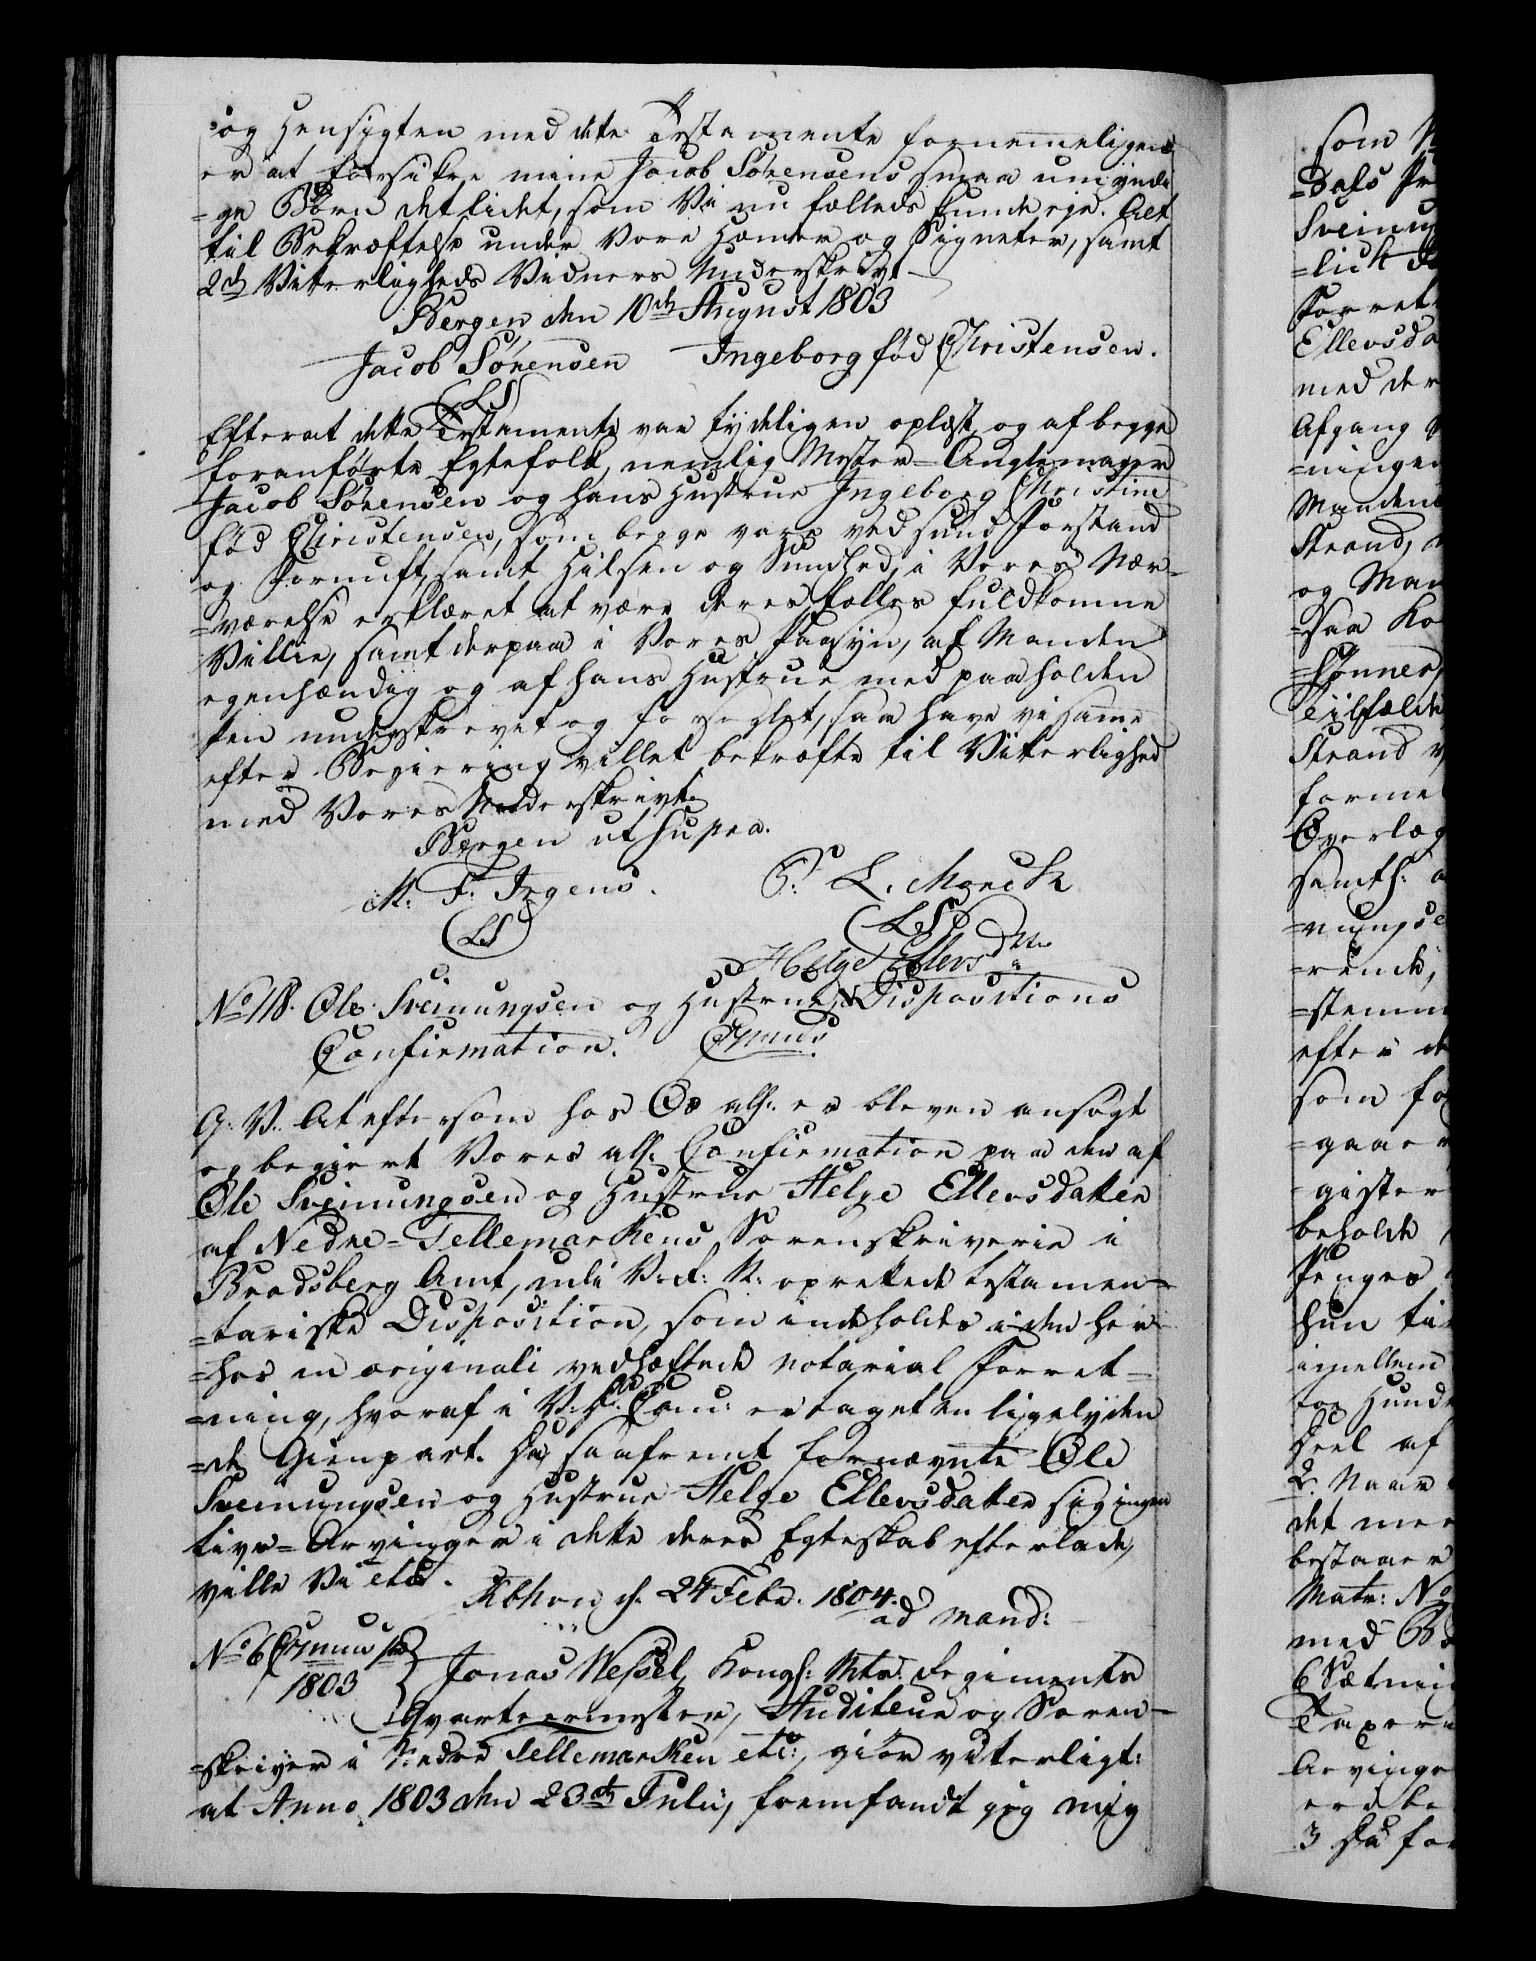 og Hensigten med dette Testamente fornemmeligen
er at forsikre mine Jacob Sørensens smaa umyndi
=ge Børn det lidet, som Vi nu fælleds kunde eje. Alt
til Bekræftelse under Vore Hænder og Signeter, samt
2de Vitterligheds Vidners Underskrivt
Bergen den 10de August 1803
Jacob Sørensen Ingeborg fød Christensen.
(LS)
Efterat dette Testamente var tydeligen oplæst og af begge
foranførte Egtefolk, nemlig Mester
Jacob Sørensen og hans Hustrue Ingeborg Christine
fød Christensen, som begge vare ved sund Forstand
og Fornuft, samt Hilsen og Sundhed, i Vores Nær=
=værelse erklæret at være deres fælles fuldkomne
Villie, samt derpaa i Vores Paasyn, af Manden
egenhændig og af hans Hustrue med paaholden
Pen underskrevet og forseglet, saa have vi samme
efter Begiering villet bekræfte til Vitterlighed
med Vores Underskrivt
Bergen ut supra.
M. F. Irgens. P. L. Munch
(LS) (LS)
Helge Ellevsdtr
No 118. Ole Sveinungsen og Hustrues Dispositions
Confirmation.
G. V. At eftersom hos Os all: er bleven ansøgt
og begiert Vores all: Confirmation paa den af
Ole Sveinungsen og Hustrue Helge Ellevsdatter
af Nedre=Tellemarkens Sorenskriverie i
Bradsberg Amt, udi V. R: N: oprettede testamen=
=tariske Disposition, som indholdes i den her
=hos in originali vedhæftede notarial Forret=
=ning, hvoraf i V: D: Canc: er taget en ligelyden
=de Gienpart. Da saafremt fornævnte Ole
Sveinungsen og Hustrue Helge Ellevsdatter sig ingen
Livs=Arvinger i dette deres Egteskab efterlade,
ville Vi etc.
Kbhvn d. 24 Febr. 1804.
ad mand:
No 6
1803 } Jonas Wessel, Kongl: Mts. Regiments
Qvarteermester, Auditeur og Soren=
=skriver i Nedre Tellemarken etc:, giør vitterligt:
at Anno 1803 den 23de Julii, fremfandt jeg mig
som
=dals Pr
Sveinung
=lict
Forret
Ellevsda
med der
Afgang
=ningen
Manden
Strand,
og Man
=saa Ko
=sønner,
Tilfælde
Strand
forme
Overlæg
samtl:
=nungse
=rende,
=stemm
efter de
som fo
=gaar
gister
beholde
Penges
hun ti
imellem
for Hund
Deel af
2. Naar
det me
bestaaer
Matr: No
med
6 Sætnin
=Taxere
Arvinge
3